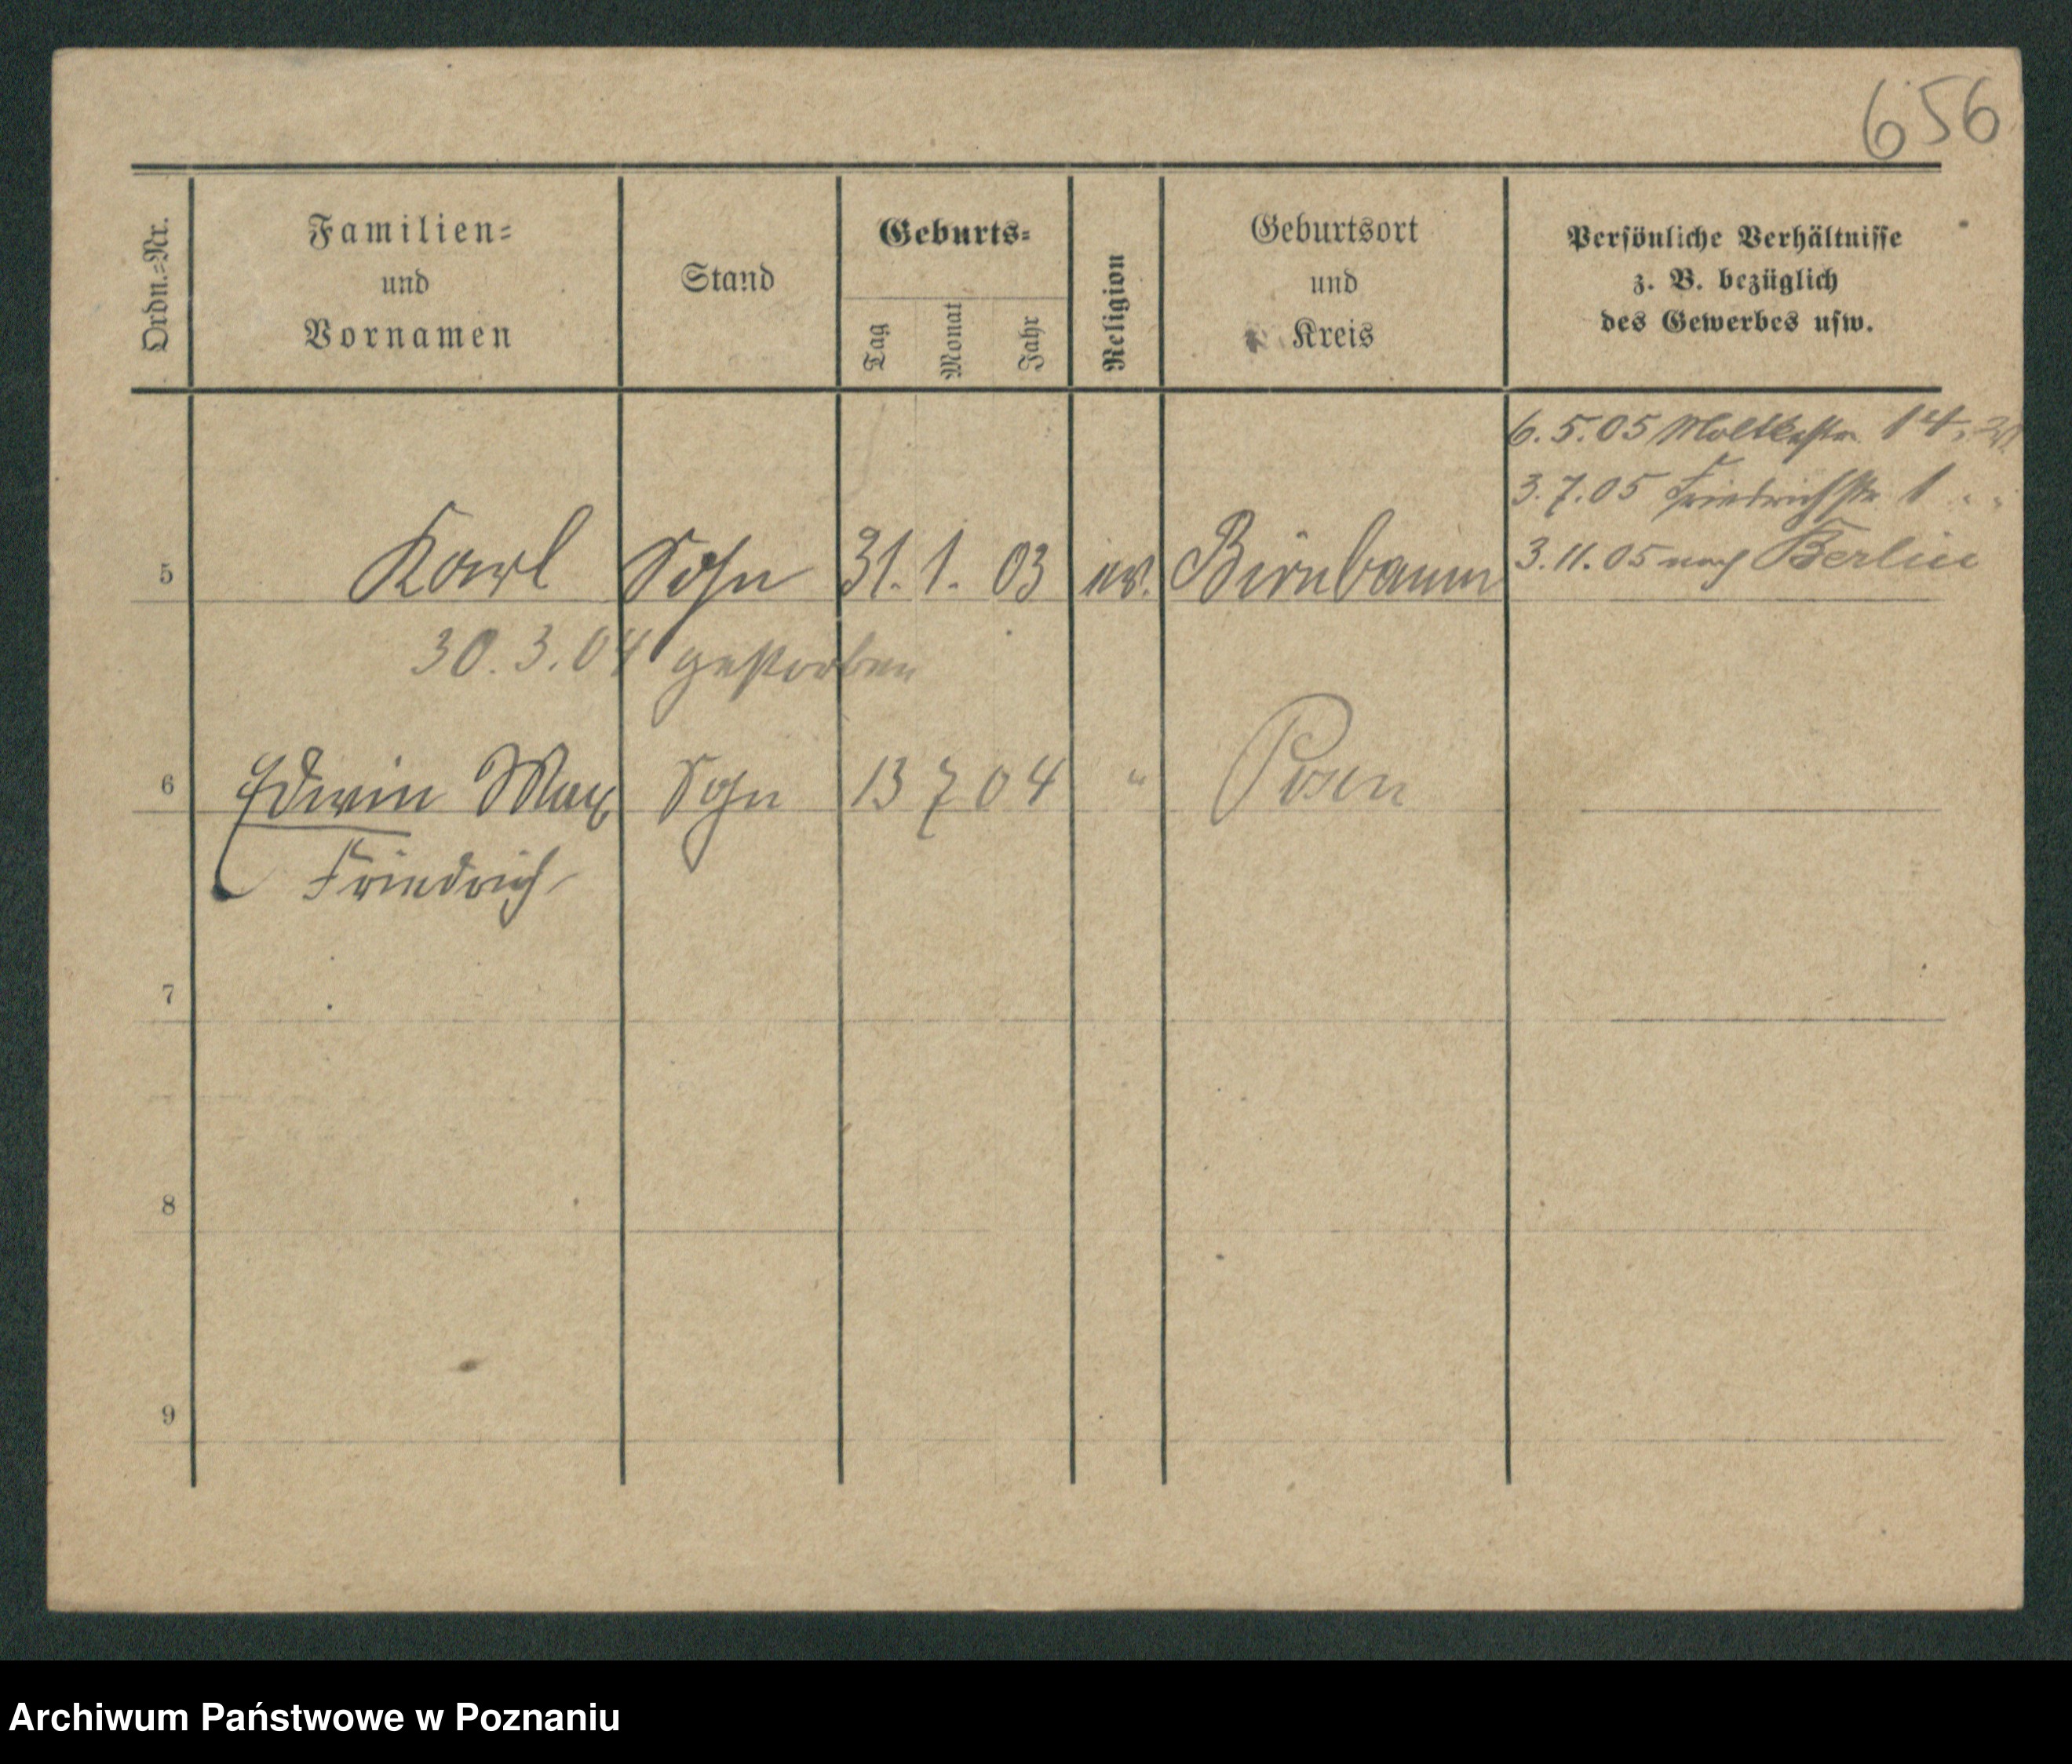 656
Ordn.=Nr.
Familien=
und
Vornamen
Stand
Geburts=
Tag
Monat
Jahr
Religion
Geburtsort
und
Kreis
Persönliche Verhältnisse
z. B. bezüglich
des Gewerbes usw.
6.5.05 Moltkestr. 14,
3.7.05 Friedrichstr. 1 " "
3.11.05 nach Berlin
5 Karl Sohn 31. 1. 03 ev. Birnbaum
30.3.04 gestorben
6 Edwin Max Sohn 13 7 04 " Posen
Friedrich
7
8
9
Archiwum Państwowe w Poznaniu